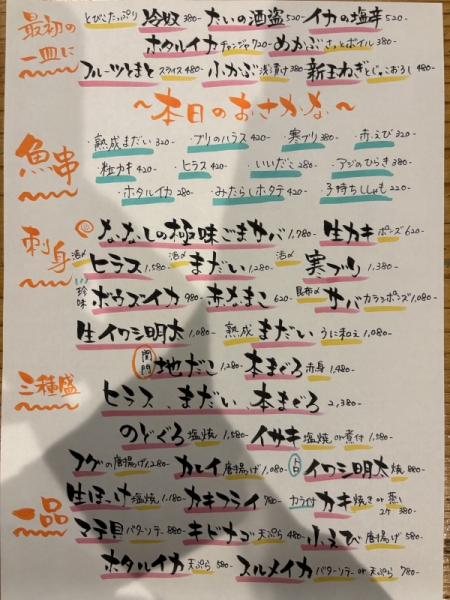 最初の一皿に
とびこたっぷり 冷奴 380- たいの酒盗 520- イカの塩辛 520-
ホタルイカチャンジャ 720- めかぶさっとボイル 380-
フルーツとまとスライス 480- 小かぶ浅漬け 380- 新玉ねぎとじゃこおろし 480-
〜本日のおさかな〜
魚串
・熟成まだい 320- ・ブリのハラス 420- ・寒ブリ 380- ・赤えび 320-
・粒カキ 420- ・ヒラス 420- ・いいだこ 280- ・アジのひらき 380-
・ホタルイカ 280- ・みたらしホタテ 420- ・子持ちししゃも 220-
刺身
ななしの極味ごまサバ 1,780- 生カキポーズ 620-
活〆 ヒラス 1,580- 活〆 まだい 1,280- 活〆 寒ブリ 1,380-
珍味 ホウズイカ 980- 赤なまこ 620- 昆布〆 サバカランポーズ 1,080-
生イワシ明太 1,080- 熟成 まだいうに和え 1,080-
関門 地だこ 1,280- 本まぐろ赤身 1,480-
三種盛
ヒラス、まだい、本まぐろ 2,380-
一品
のどぐろ塩焼 1,580- イサキ塩焼or煮付 1,580-
フグの唐揚げ 1,280- カレイ唐揚げ 1,080- イワシ明太焼 880-
生ほっけ塩焼 1,180- カキフライ 780- カラ付カキ焼きor蒸し 2ケ 380-
マテ貝バターソテー 880- キビナゴ天ぷら 480- 小えび唐揚げ 580-
ホタルイカ天ぷら 580- スルメイカバターソテーor天ぷら 780-